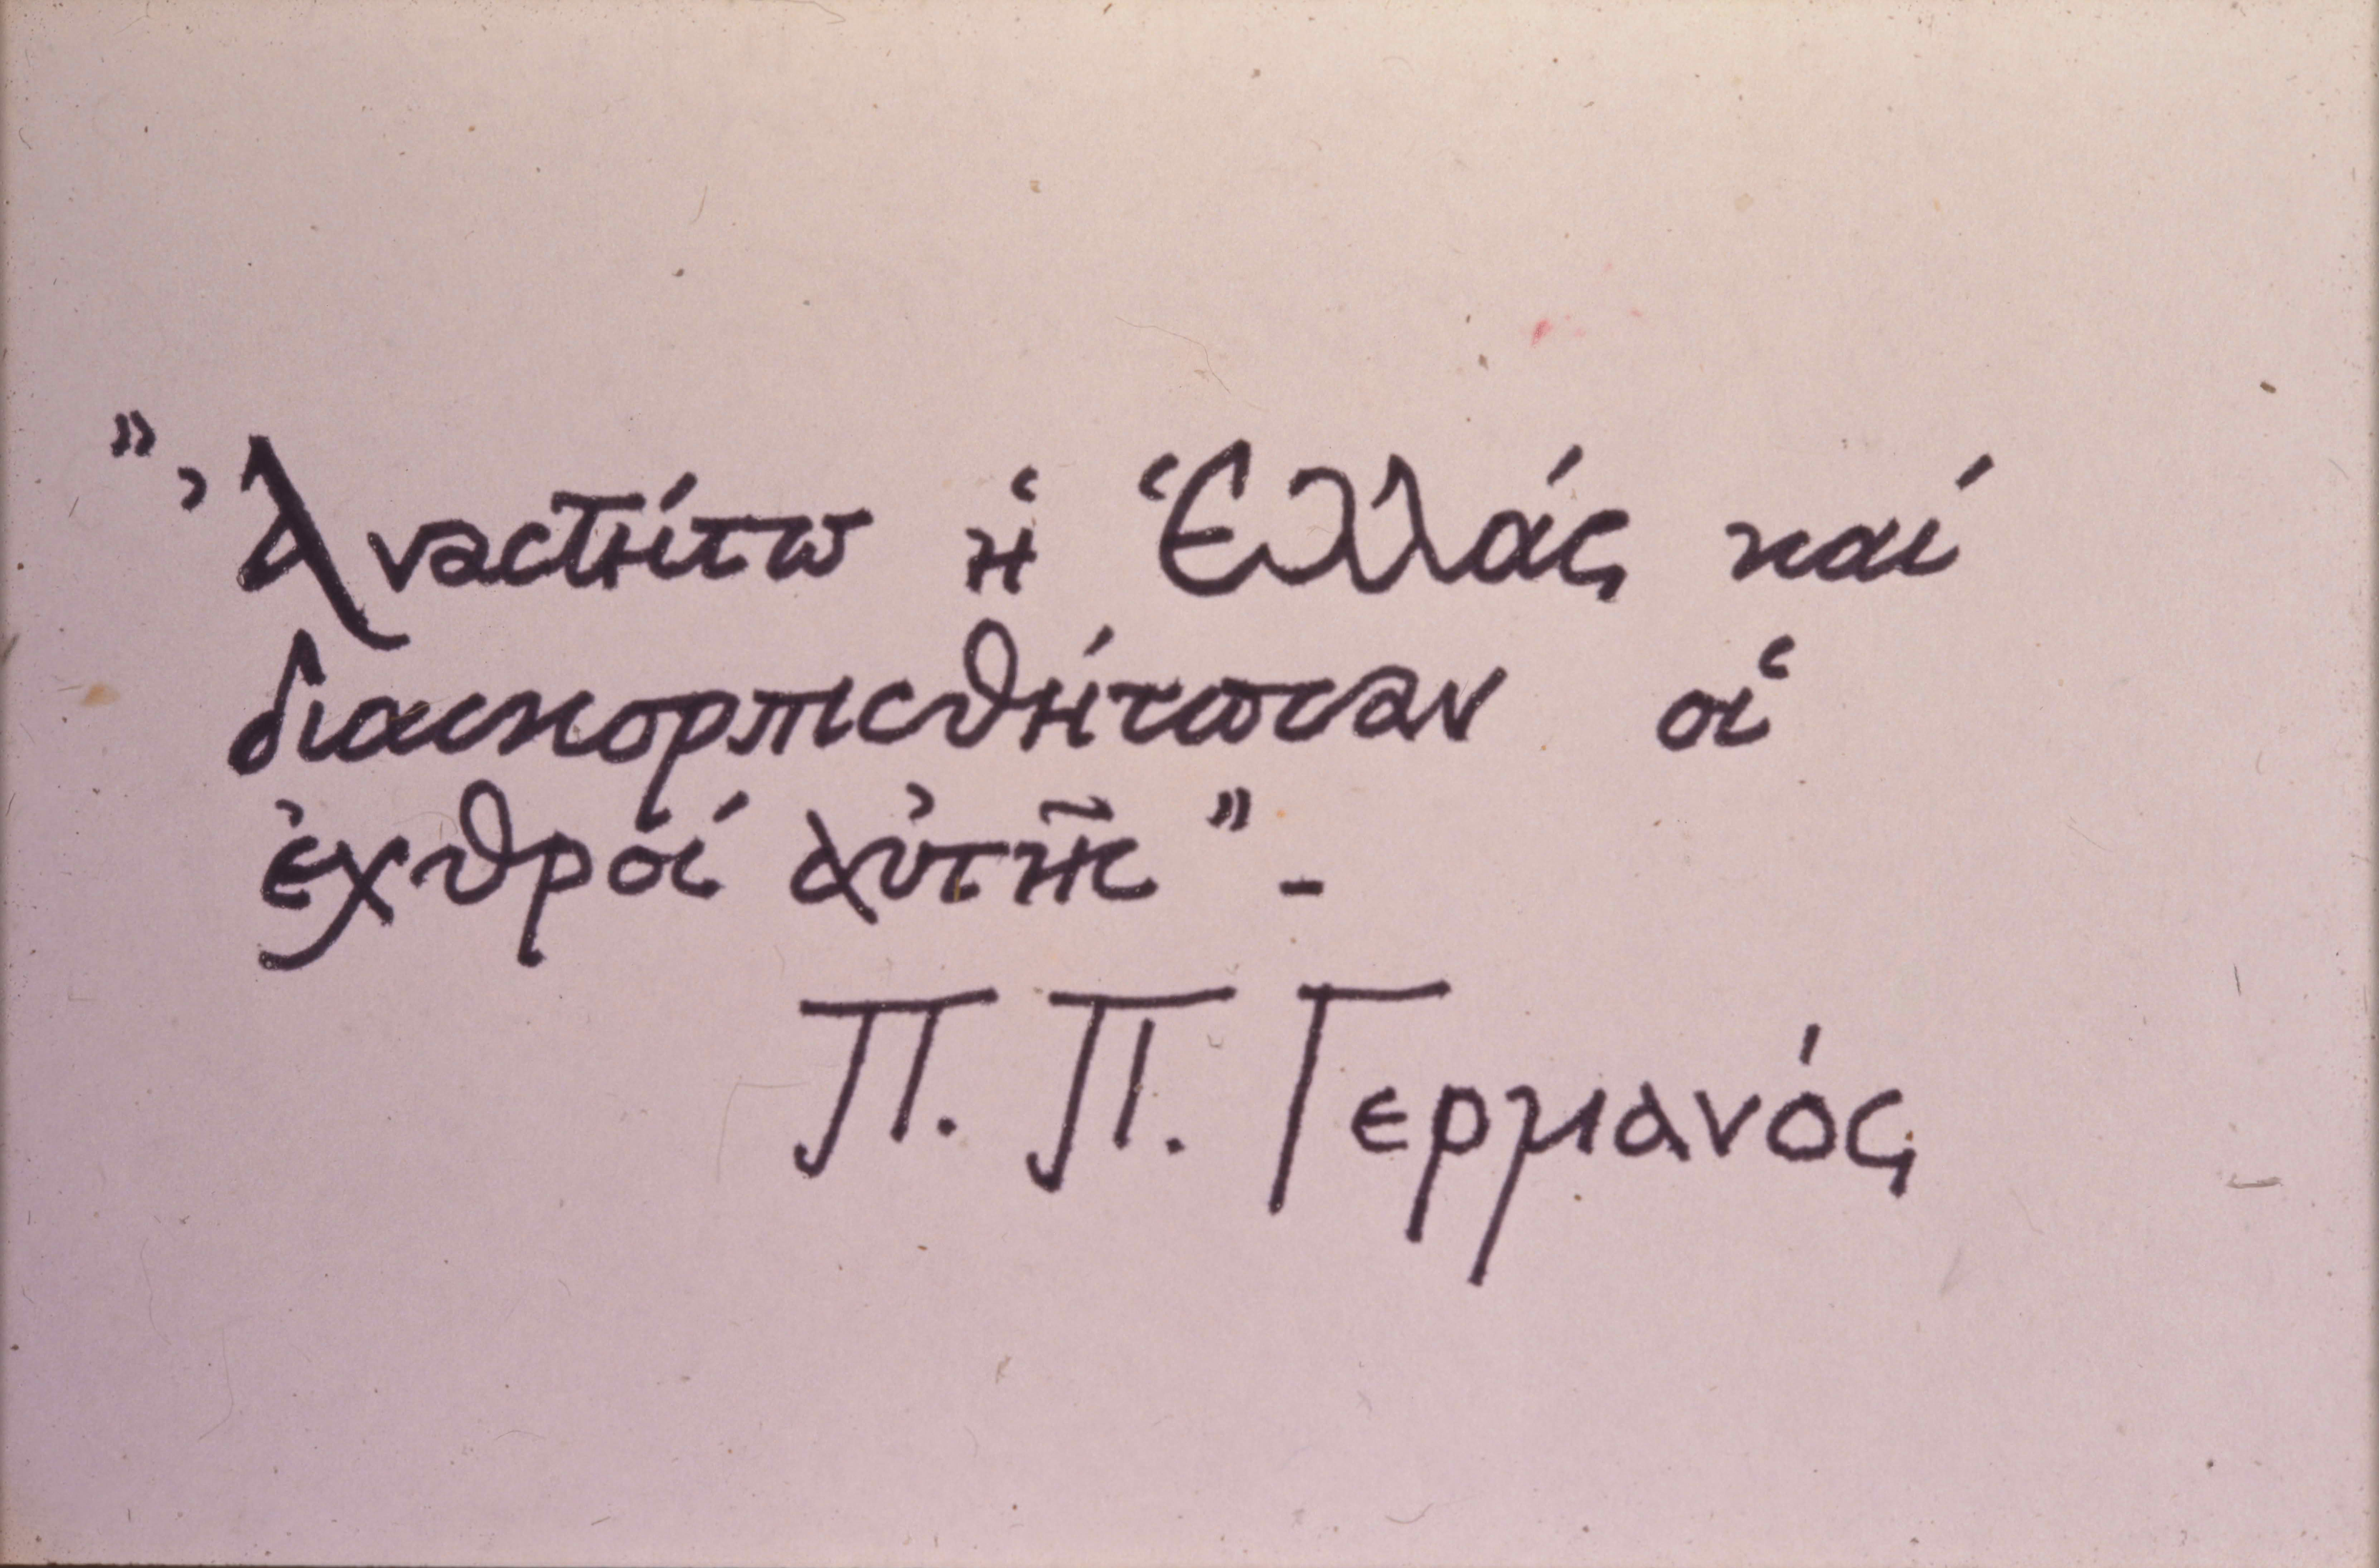 "Ἀναστήτω ἡ Ἑλλάς καί
διασκορπισθήτωσαν οἱ
ἐχθροί αὐτῆς"-
Π. Π. Γερμανός